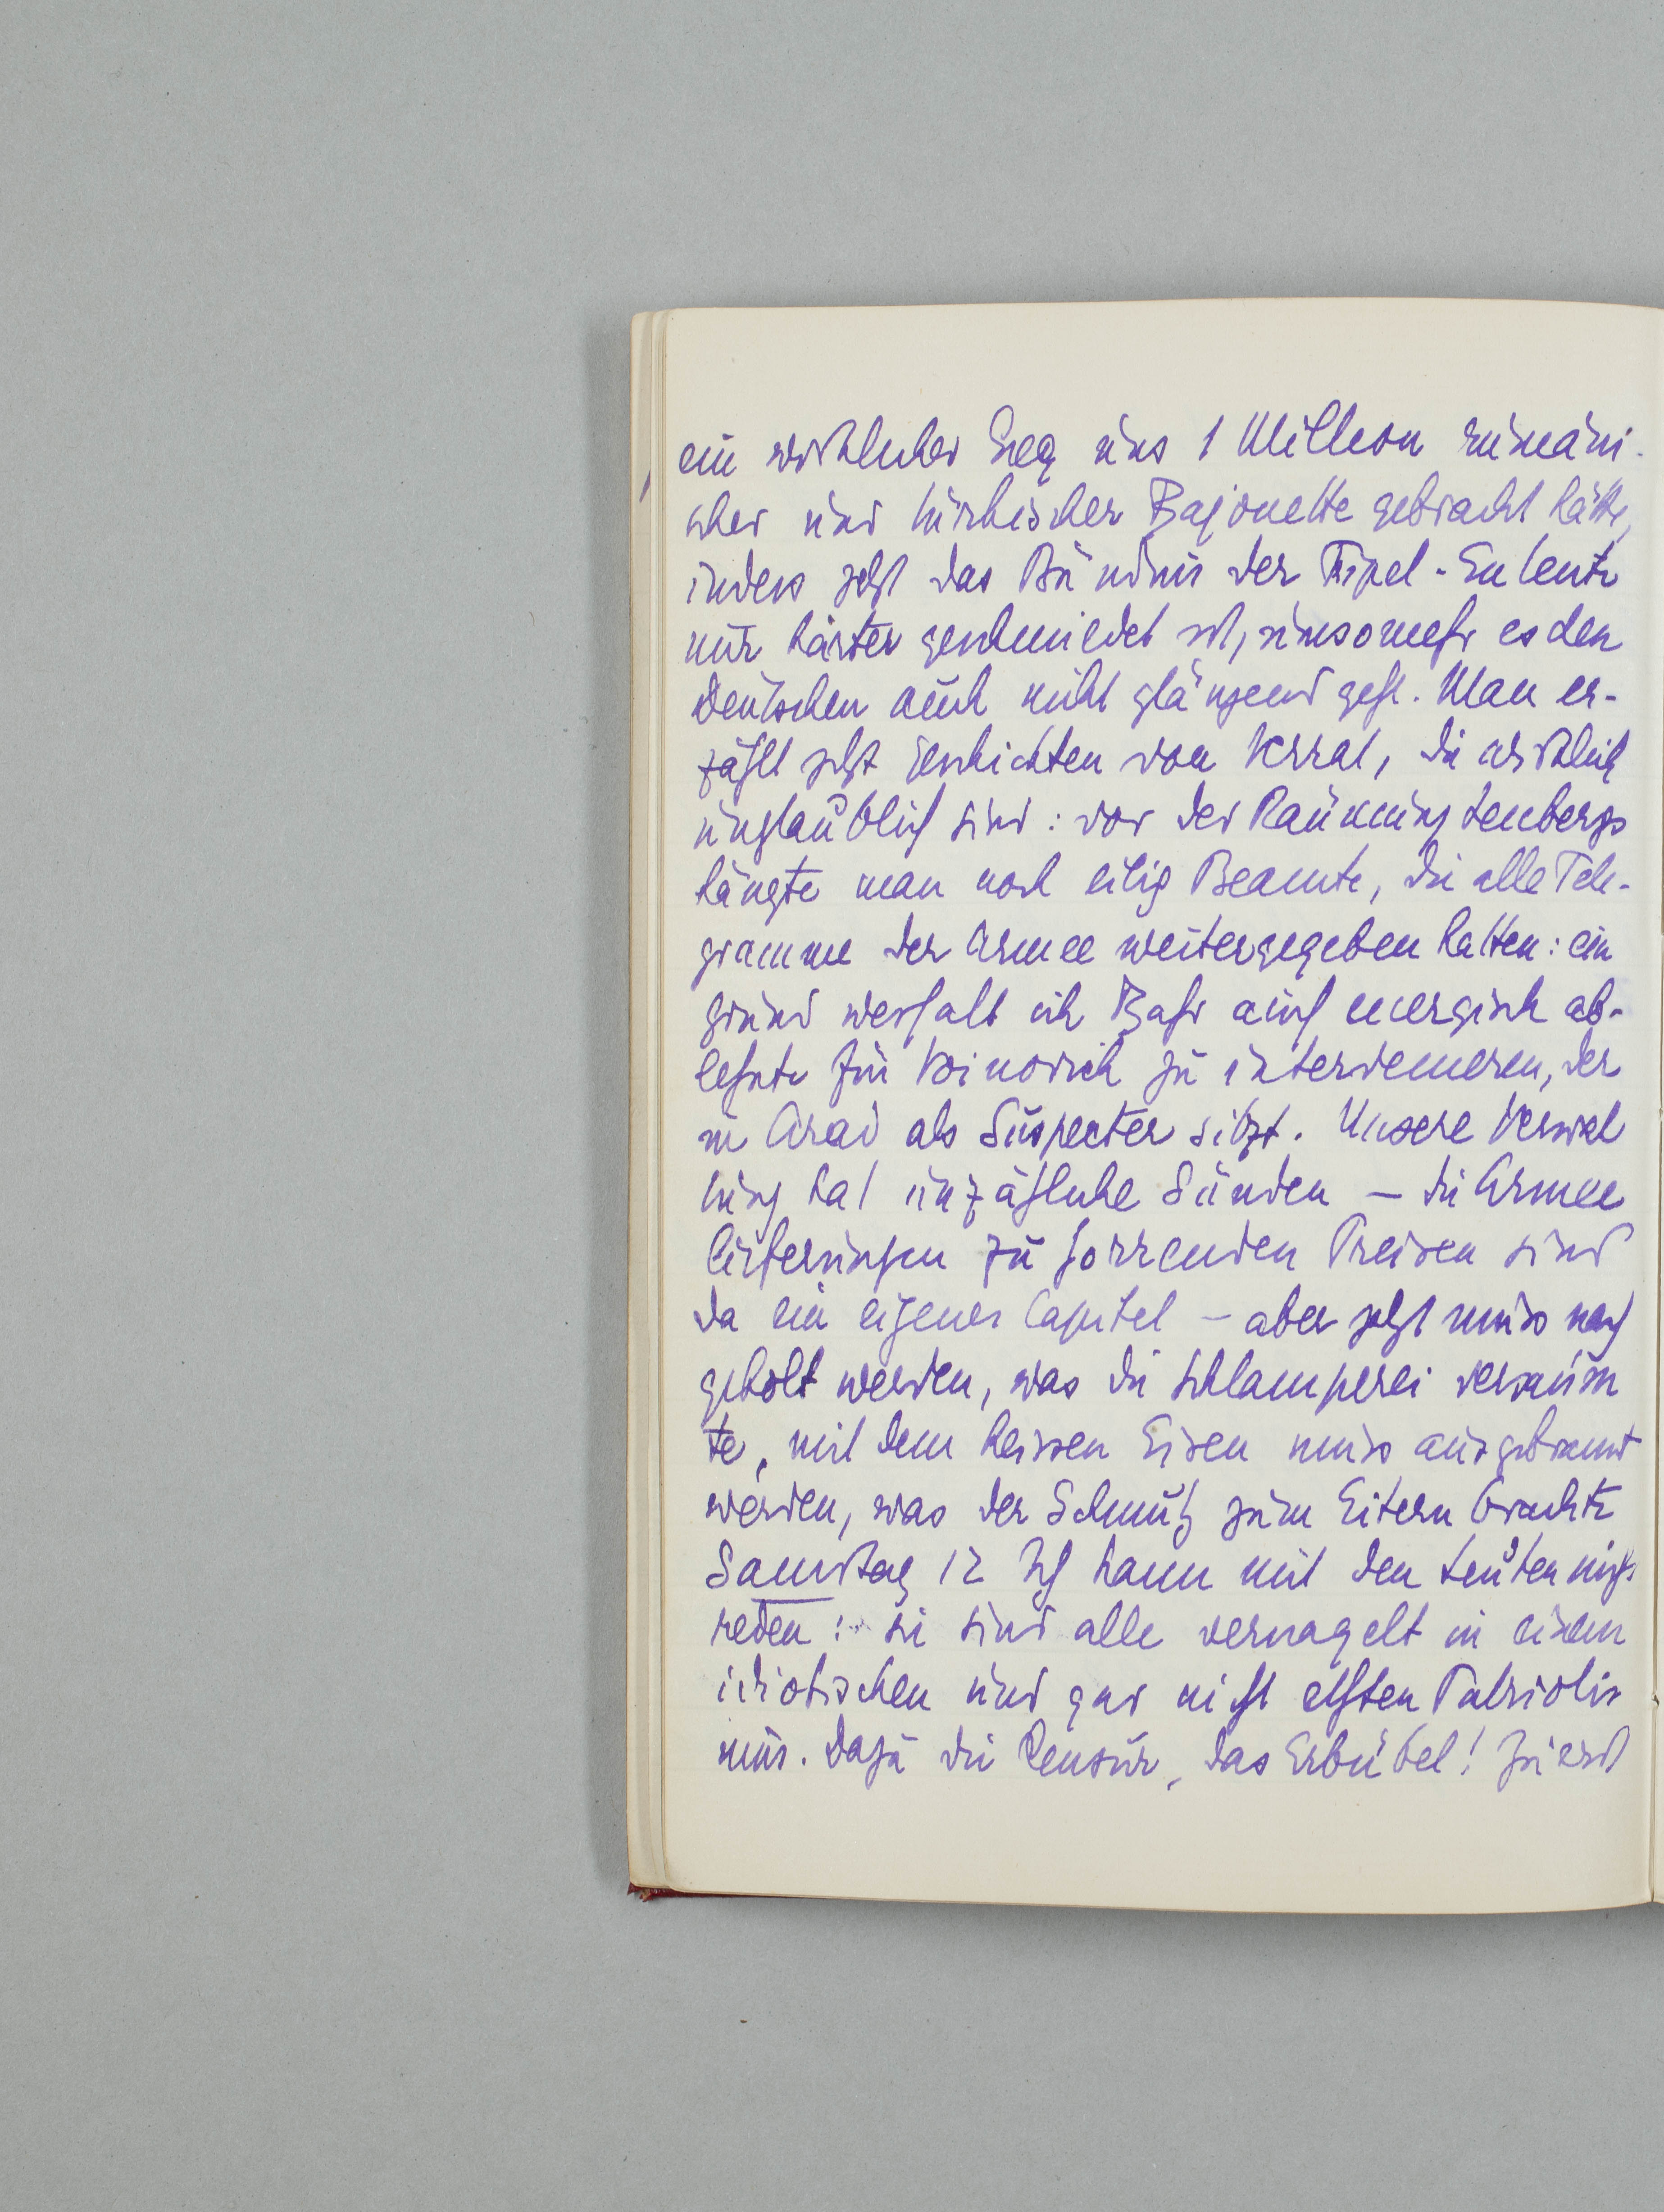 ein wirklicher Sieg uns 1 Million rumäni-
scher und türkischer Bajonette gebracht hätte,
indess jetzt das Bündnis der Tripel-Entente
nur härter geschmiedet ist, umsomehr es den
Deutschen auch nicht glänzend geht. Man er-
zählt jetzt Geschichten von Verrat, die wirklich
unglaublich sind: vor der Räumung Lembergs
hängte man noch eilig Beamte, die alle Tele-
gramme der Armee weitergegeben hatten: ein
Grund weshalb ich Bahr auch energisch ab-
lehnte für Voinovich zu intervenieren, der
in Arad als Suspecter sitzt. Unsere Verwal
tung hat unzähliche Sünden – die Armee
lieferungen zu horrenden Preisen sind
da ein eigenes Capitel – aber jetzt muss nach
geholt werden, was die Schlamperei versäum
te, mit dem heissen Eisen muss ausgebrannt
werden, was der Schmutz zum Eitern brachte
Samstag 12 Ich kann mit den Leuten nicht
reden: sie sind alle vernagelt in einem
idiotischen und gar nicht echten Patriotis
mus. Dazu die Censur, das Erbübel! Zuerst